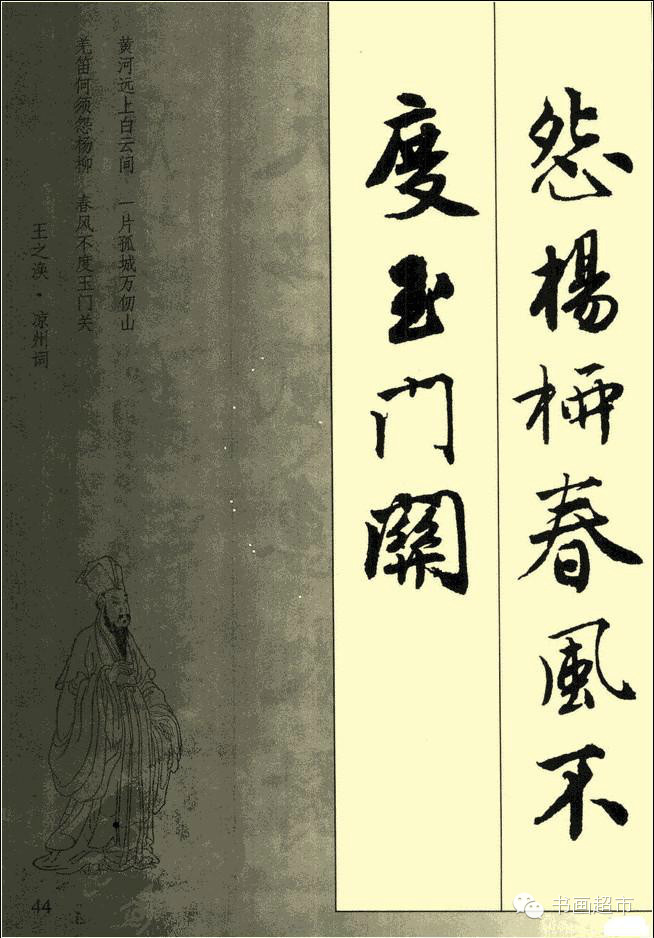 怨楊柳春風不
度玉門關
黄河远上白云间 一片孤城万仞山
羌笛何须怨杨柳 春风不度玉门关
王之涣·凉州词
44
书画超市